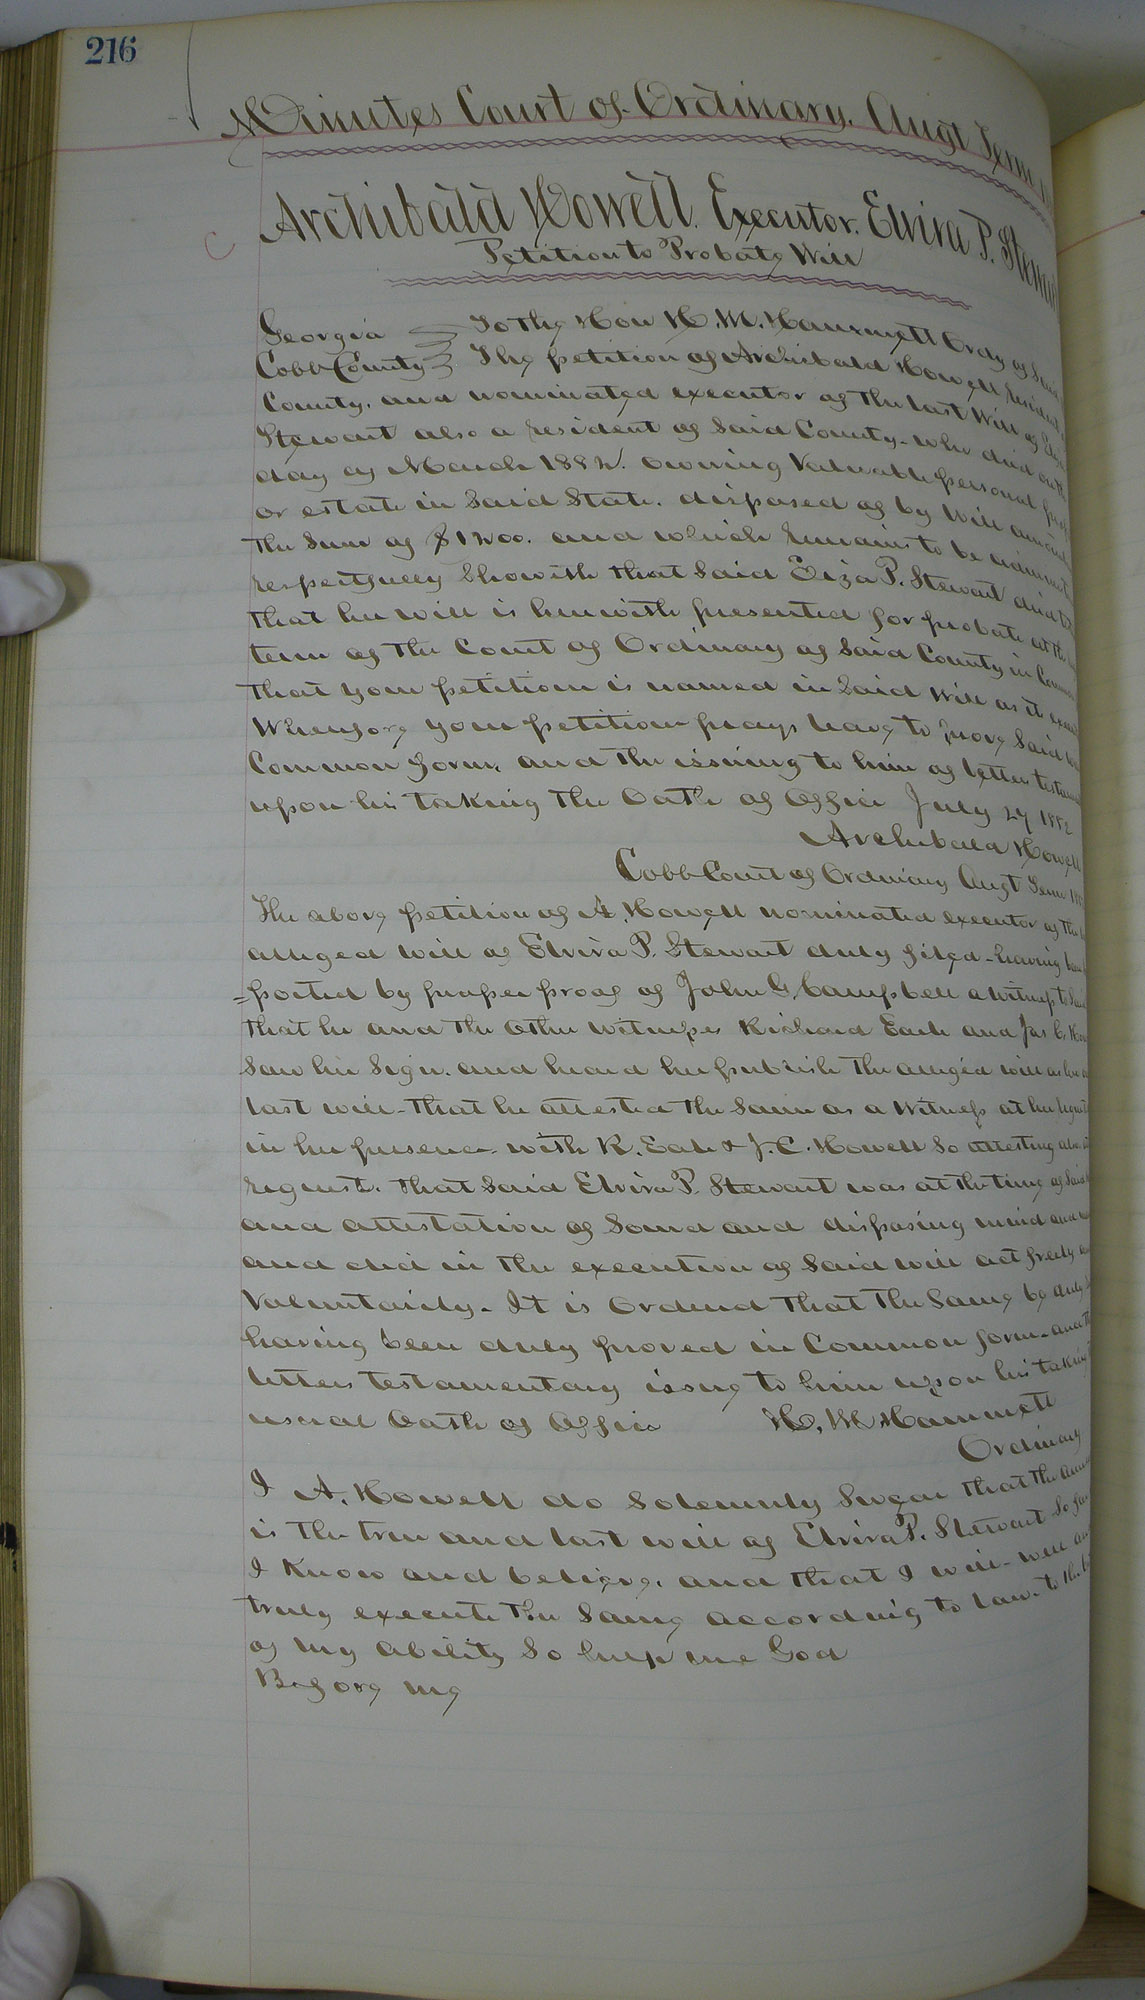 216
Minutes Court of Ordinary. Augt Term
Archibald Howell. Executor. Elvira P. Stewart
Petition to Probate Will
Georgia To the Hon H. M. Hammett Ordy of Said
Cobb County The petition of Archibald Howell resident
County. and nominated executor of the last Will of
Stewart also a resident of Said County. who died on the
day of March 1882. owning Valuable personal
or estate in Said State. disposed of by Will
the Sum of $1200. and which remains to be
respectfully Showeth that Said Eliza P. Stewart died
that her will is herewith presented for probate at the
term of the Court of Ordinary of Said County in
that your petitioner is named in Said Will as it
Wherefore your petitioner prays leave to prove Said
Common form, and the issuing to him of letters
upon his taking the Oath of Office July 27 1882
Archibald Howell
Cobb Court of Ordinary Augt Term
The above petition of A. Howell nominated executor of the
alleged will of Elvira P. Stewart duly filed - having been
=ported by proper proof of John G. Campbell a witness to Said
that he and the other witnesses Richard Eade and Jas C.
Saw her Sign. and heard her publish the alleged will as her
last will - that he attested the Same as a Witness at her
in her presence with R. Eade & J. C. Howell So attesting
request. that Said Elvira P. Stewart was at the time of Said
and attestation of Sound and disposing mind and
and did in the execution of Said will act freely
Voluntarily. It is Ordered that the Same be
having been duly proved in Common form - and
letters testamentary issue to him upon his taking
usual Oath of Office H. M. Hammett
Ordinary
I A. Howell do Solemnly Swear that the
is the true and last will of Elvira P. Stewart So far
I Know and believe. and that I will - well
truly execute the Same according to law. to the
of my ability So help me God
Before me